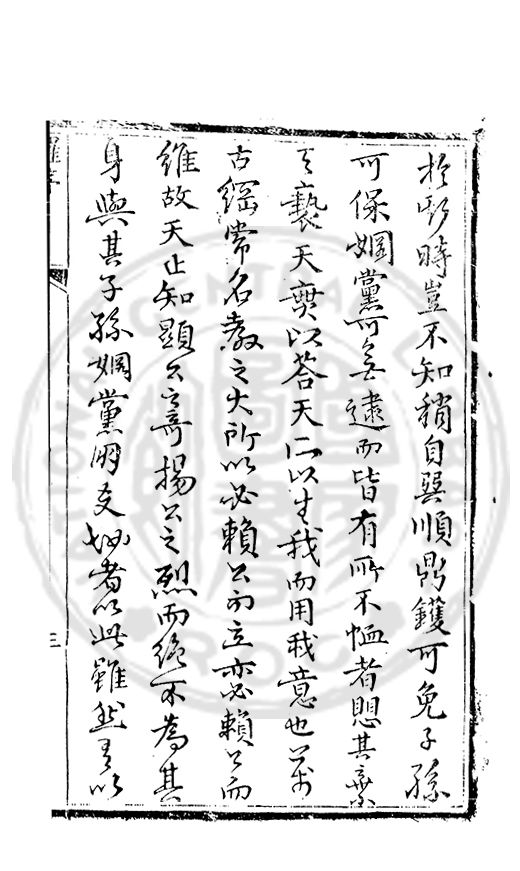 於斯時豈不知稍自巽順鼎鑊可免子孫
可保姻黨可無逮而皆有所不恤者思其棄
褻天無以答天所以生我而用我意也萬
古綱常名教之大所以必賴公而立亦必賴公而
維故天止知顯公之奇揚公之烈而絕不為其
身與其子孫姻黨朋友地者以此雖然有以